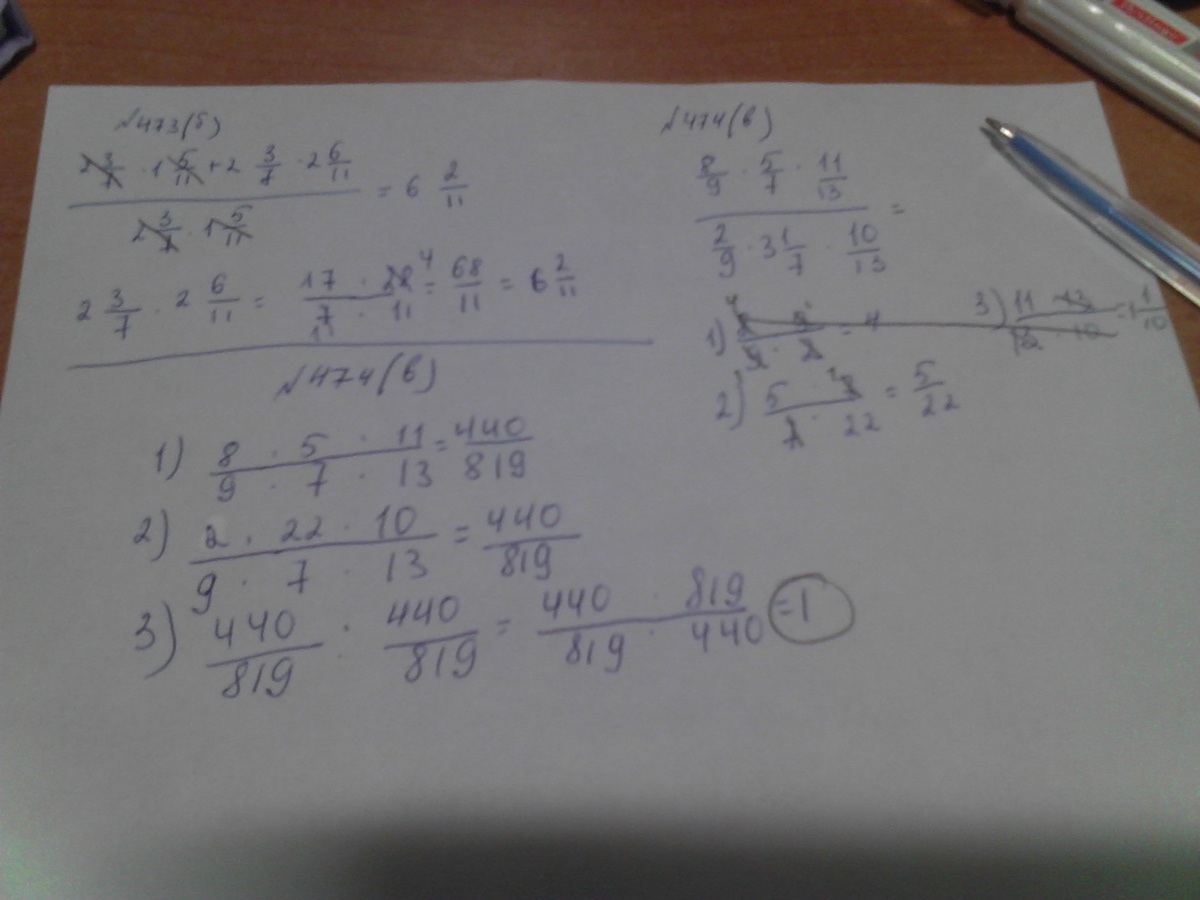 №473(б)
2 3/7 · 1 5/11 + 2 3/7 · 2 6/11
2 3/7 · 1 5/11
= 6 2/11
2 3/7 · 2 6/11 = 17 · 28 4 / 7 · 11 = 68/11 = 6 2/11
№474(в)
1) 8 · 5 · 11 / 9 · 7 · 13 = 440/819
2) 2 · 22 · 10 / 9 · 7 · 13 = 440/819
3) 440/819 : 440/819 = 440 · 819 / 819 · 440 = 1
№474(в)
8/9 · 5/7 · 11/13
2/9 · 3 1/7 · 10/13
=
1) = 4
3) 11 · 13 / 13 · 10 = 1 1/10
2) 5 · 7 / 7 · 22 = 5/22